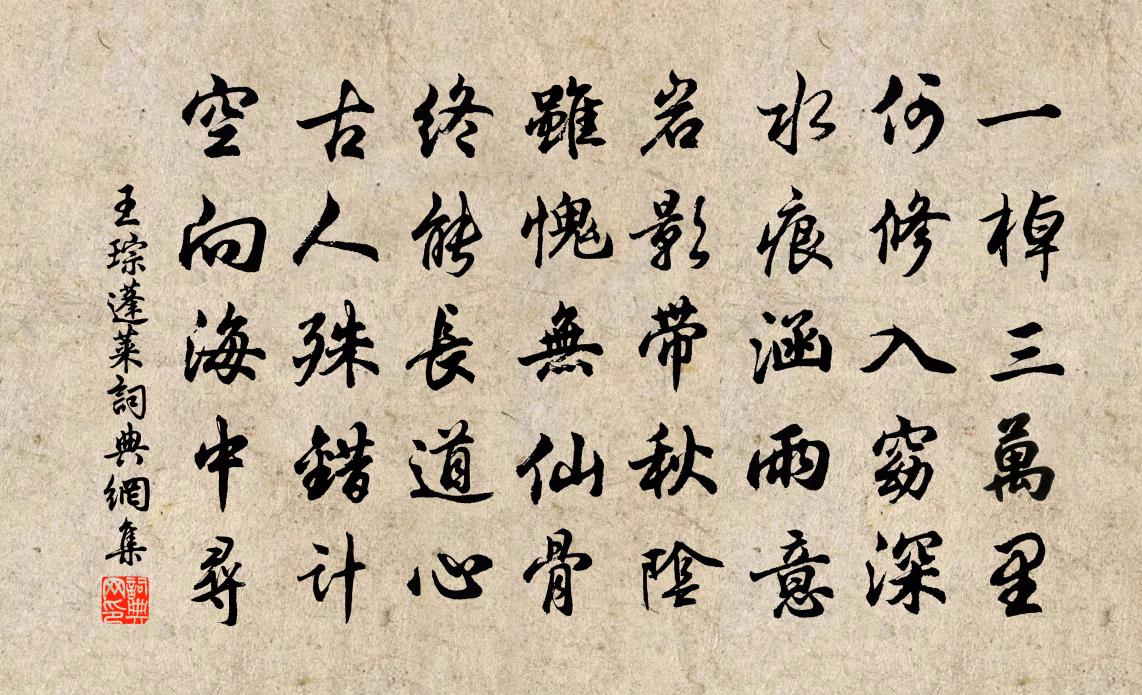 一棹三萬里
何修入窈深
水痕涵雨意
岩影帶秋陰
雖愧無仙骨
終能長道心
古人殊錯計
空向海中尋
王琮蓬萊詞典網集
詞典網印